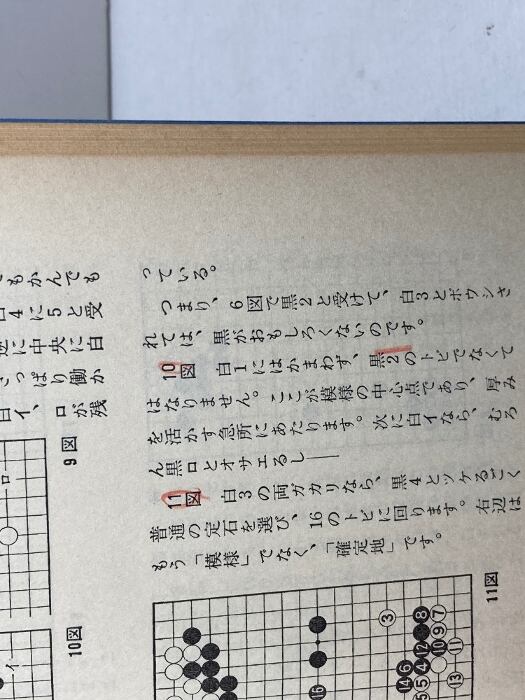 もかんでも
白4に5と受
逆に中央に白
っぱり働か
白イ、ロが残
9図
10図
っている。
つまり、6図で黒2と受けて、白3とボウシさ
れては、黒がおもしろくないのです。
10図 白1にはかまわず、黒2のトビでなくて
はなりません。ここが模様の中心点であり、厚み
を活かす急所にあたります。次に白イなら、むろ
ん黒ロとオサエるし――
11図 白3の両ガカリなら、黒4とツケるごく
普通の定石を選び、16のトビに回ります。右辺は
もう「模様」でなく、「確定地」です。
11図